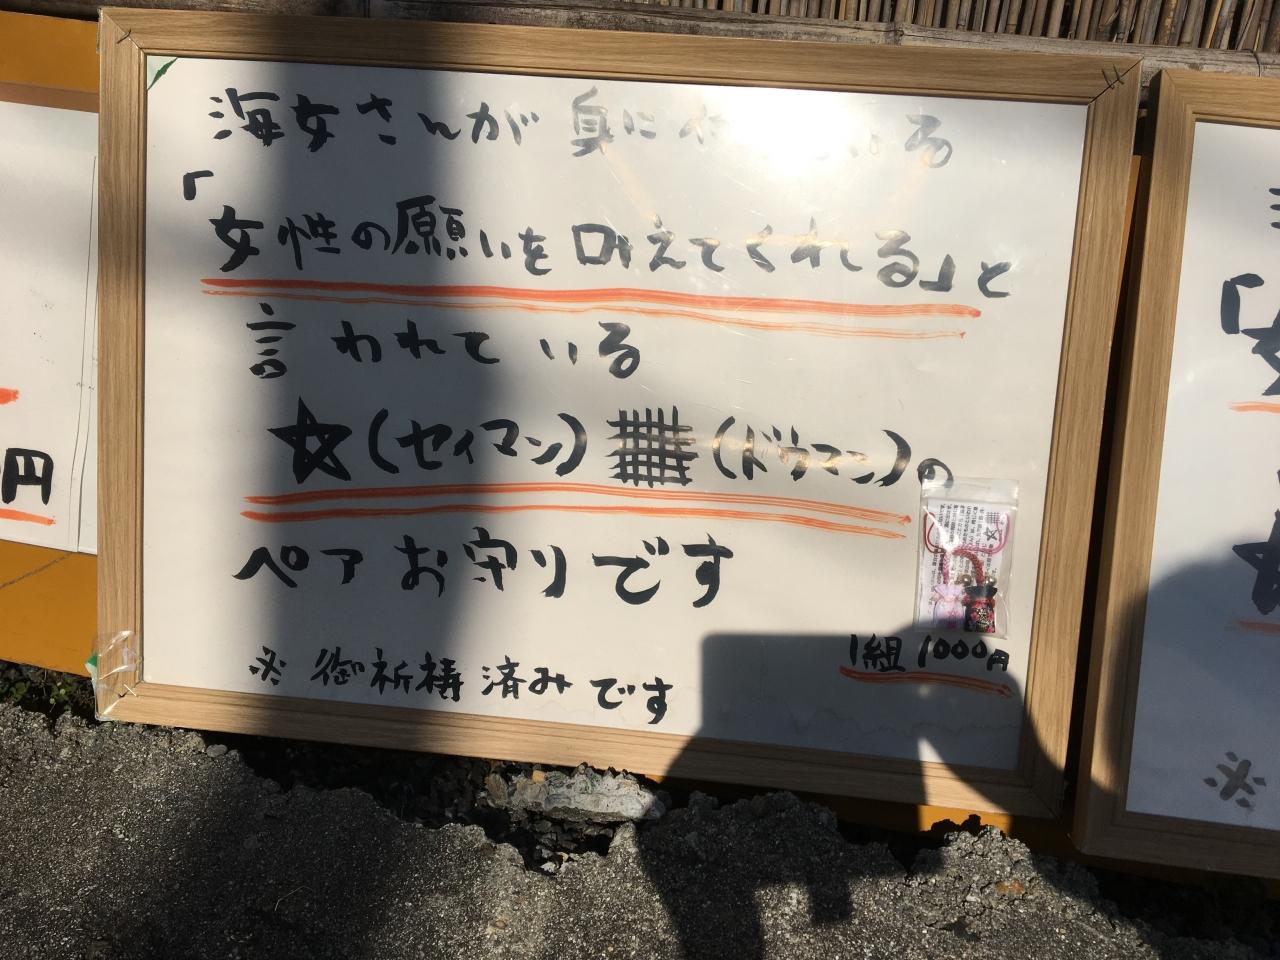 海女さんが身に る
「女性の願いを叶えてくれる」と
言われている
☆(セイマン) (ドウマン)の
ペアお守りです
※御祈祷済みです
1組 1000円
円
「女
※